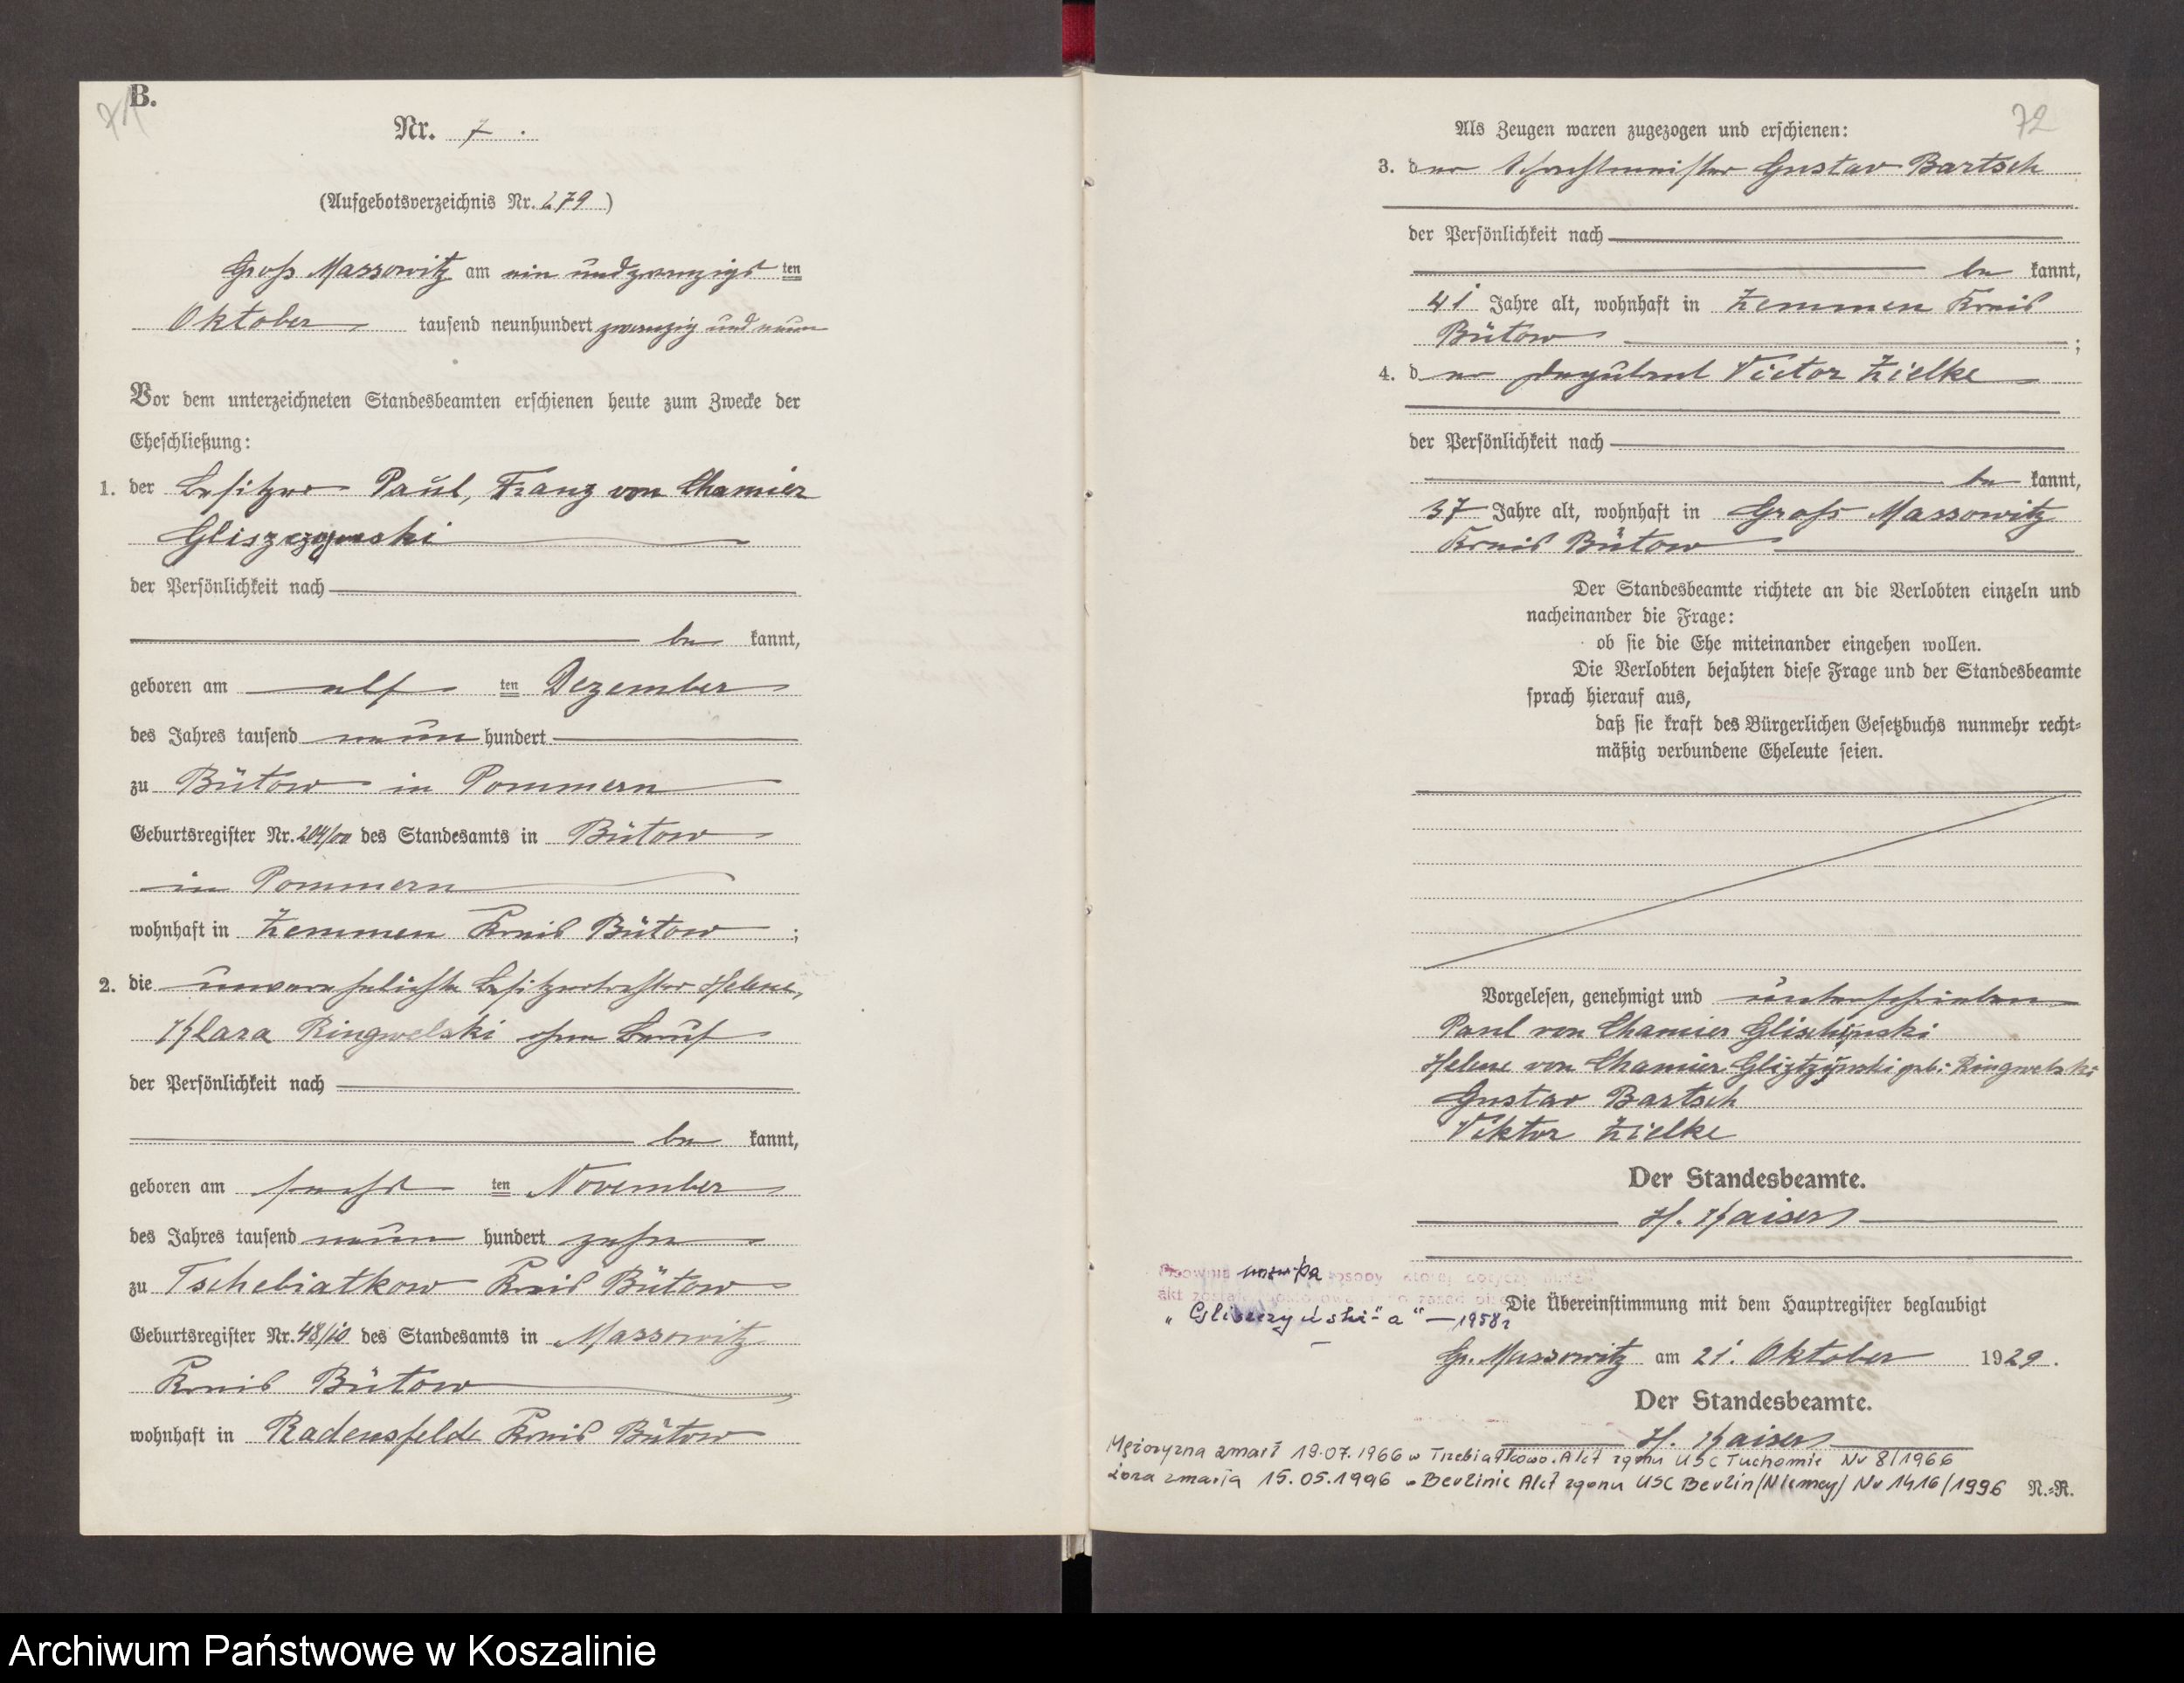 B.
71
Nr. 7.
(Aufgebotsverzeichnis Nr. 279)
Groß Massowitz am ein und zwanzigsten
Oktober tausend neunhundert zwanzig und neun
Vor dem unterzeichneten Standesbeamten erschienen heute zum Zwecke der
Eheschließung:
1. der Besitzer Paul, Franz von Chamier
Gliszczynski
der Persönlichkeit nach
be kannt,
geboren am elf ten Dezember
des Jahres tausend neun hundert
zu Bütow in Pommern
Geburtsregister Nr. 204/00 des Standesamts in Bütow
in Pommern
wohnhaft in Zemmen Kreis Bütow ;
2. die unverehelichte Besitzertochter Helene,
Klara Ringwelski ohne Beruf
der Persönlichkeit nach
be kannt,
geboren am sechs ten November
des Jahres tausend neun hundert zehn
zu Tschebiatkow Kreis Bütow
Geburtsregister Nr. 48/10 des Standesamts in Massowitz
Kreis Bütow
wohnhaft in Radensfelde Kreis Bütow
72
Als Zeugen waren zugezogen und erschienen:
3. der Schachtmeister Gustav Bartsch
der Persönlichkeit nach
be kannt,
41 Jahre alt, wohnhaft in Zemmen Kreis
Bütow ;
4. der Victor Zielke
der Persönlichkeit nach
be kannt,
37 Jahre alt, wohnhaft in Groß Massowitz
Kreis Bütow
Der Standesbeamte richtete an die Verlobten einzeln und
nacheinander die Frage:
ob sie die Ehe miteinander eingehen wollen.
Die Verlobten bejahten diese Frage und der Standesbeamte
sprach hierauf aus,
daß sie kraft des Bürgerlichen Gesetzbuchs nunmehr recht-
mäßig verbundene Eheleute seien.
Vorgelesen, genehmigt und unterschrieben
Paul von Chamier Glischinski
Helene von Chamier Gliztzynski geb: Ringwelski
Gustav Bartsch
Viktor Zielke
Der Standesbeamte.
H. Kaiser
Pisownia nazwiska osoby której dotyczy
akt
„Gliszczyński-a“ — 1958 r
Die Übereinstimmung mit dem Hauptregister beglaubigt
Gr. Massowitz am 21. Oktober 1929.
Der Standesbeamte.
H. Kaiser
Mężczyzna zmarł 19.07.1966 w Trzebiatkowo. Akt zgonu USC Tuchomie Nr 8/1966
żona zmarła 15.05.1996 w Berlinie Akt zgonu USC Berlin/Niemcy/ Nr 1416/1996
N.=R.
Archiwum Państwowe w Koszalinie